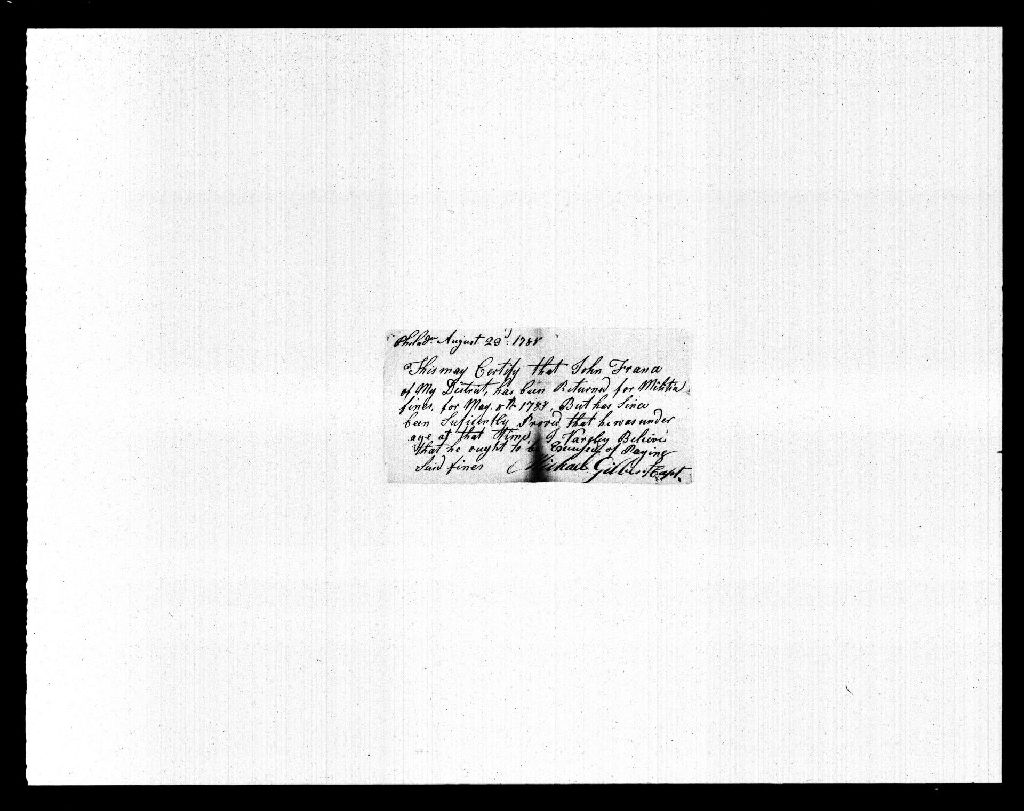 Philada August 23d: 1788
This may Certify that John Frana
of My District, has been Returned for Militia
fines, for May 5th 1783, But has Since
been Suficently Proved, that he was under
age at that Time, I Believe
that he ought to be of Paying
Said fines Michael Gilbert Capt.